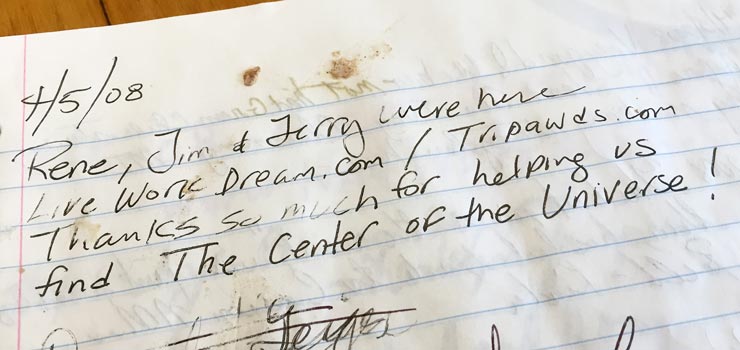 4/5/08
Rene, Jim & Jerry were here
Live Work Dream.com / Tripawds.com
Thanks so much for helping us
find The Center of the Universe!